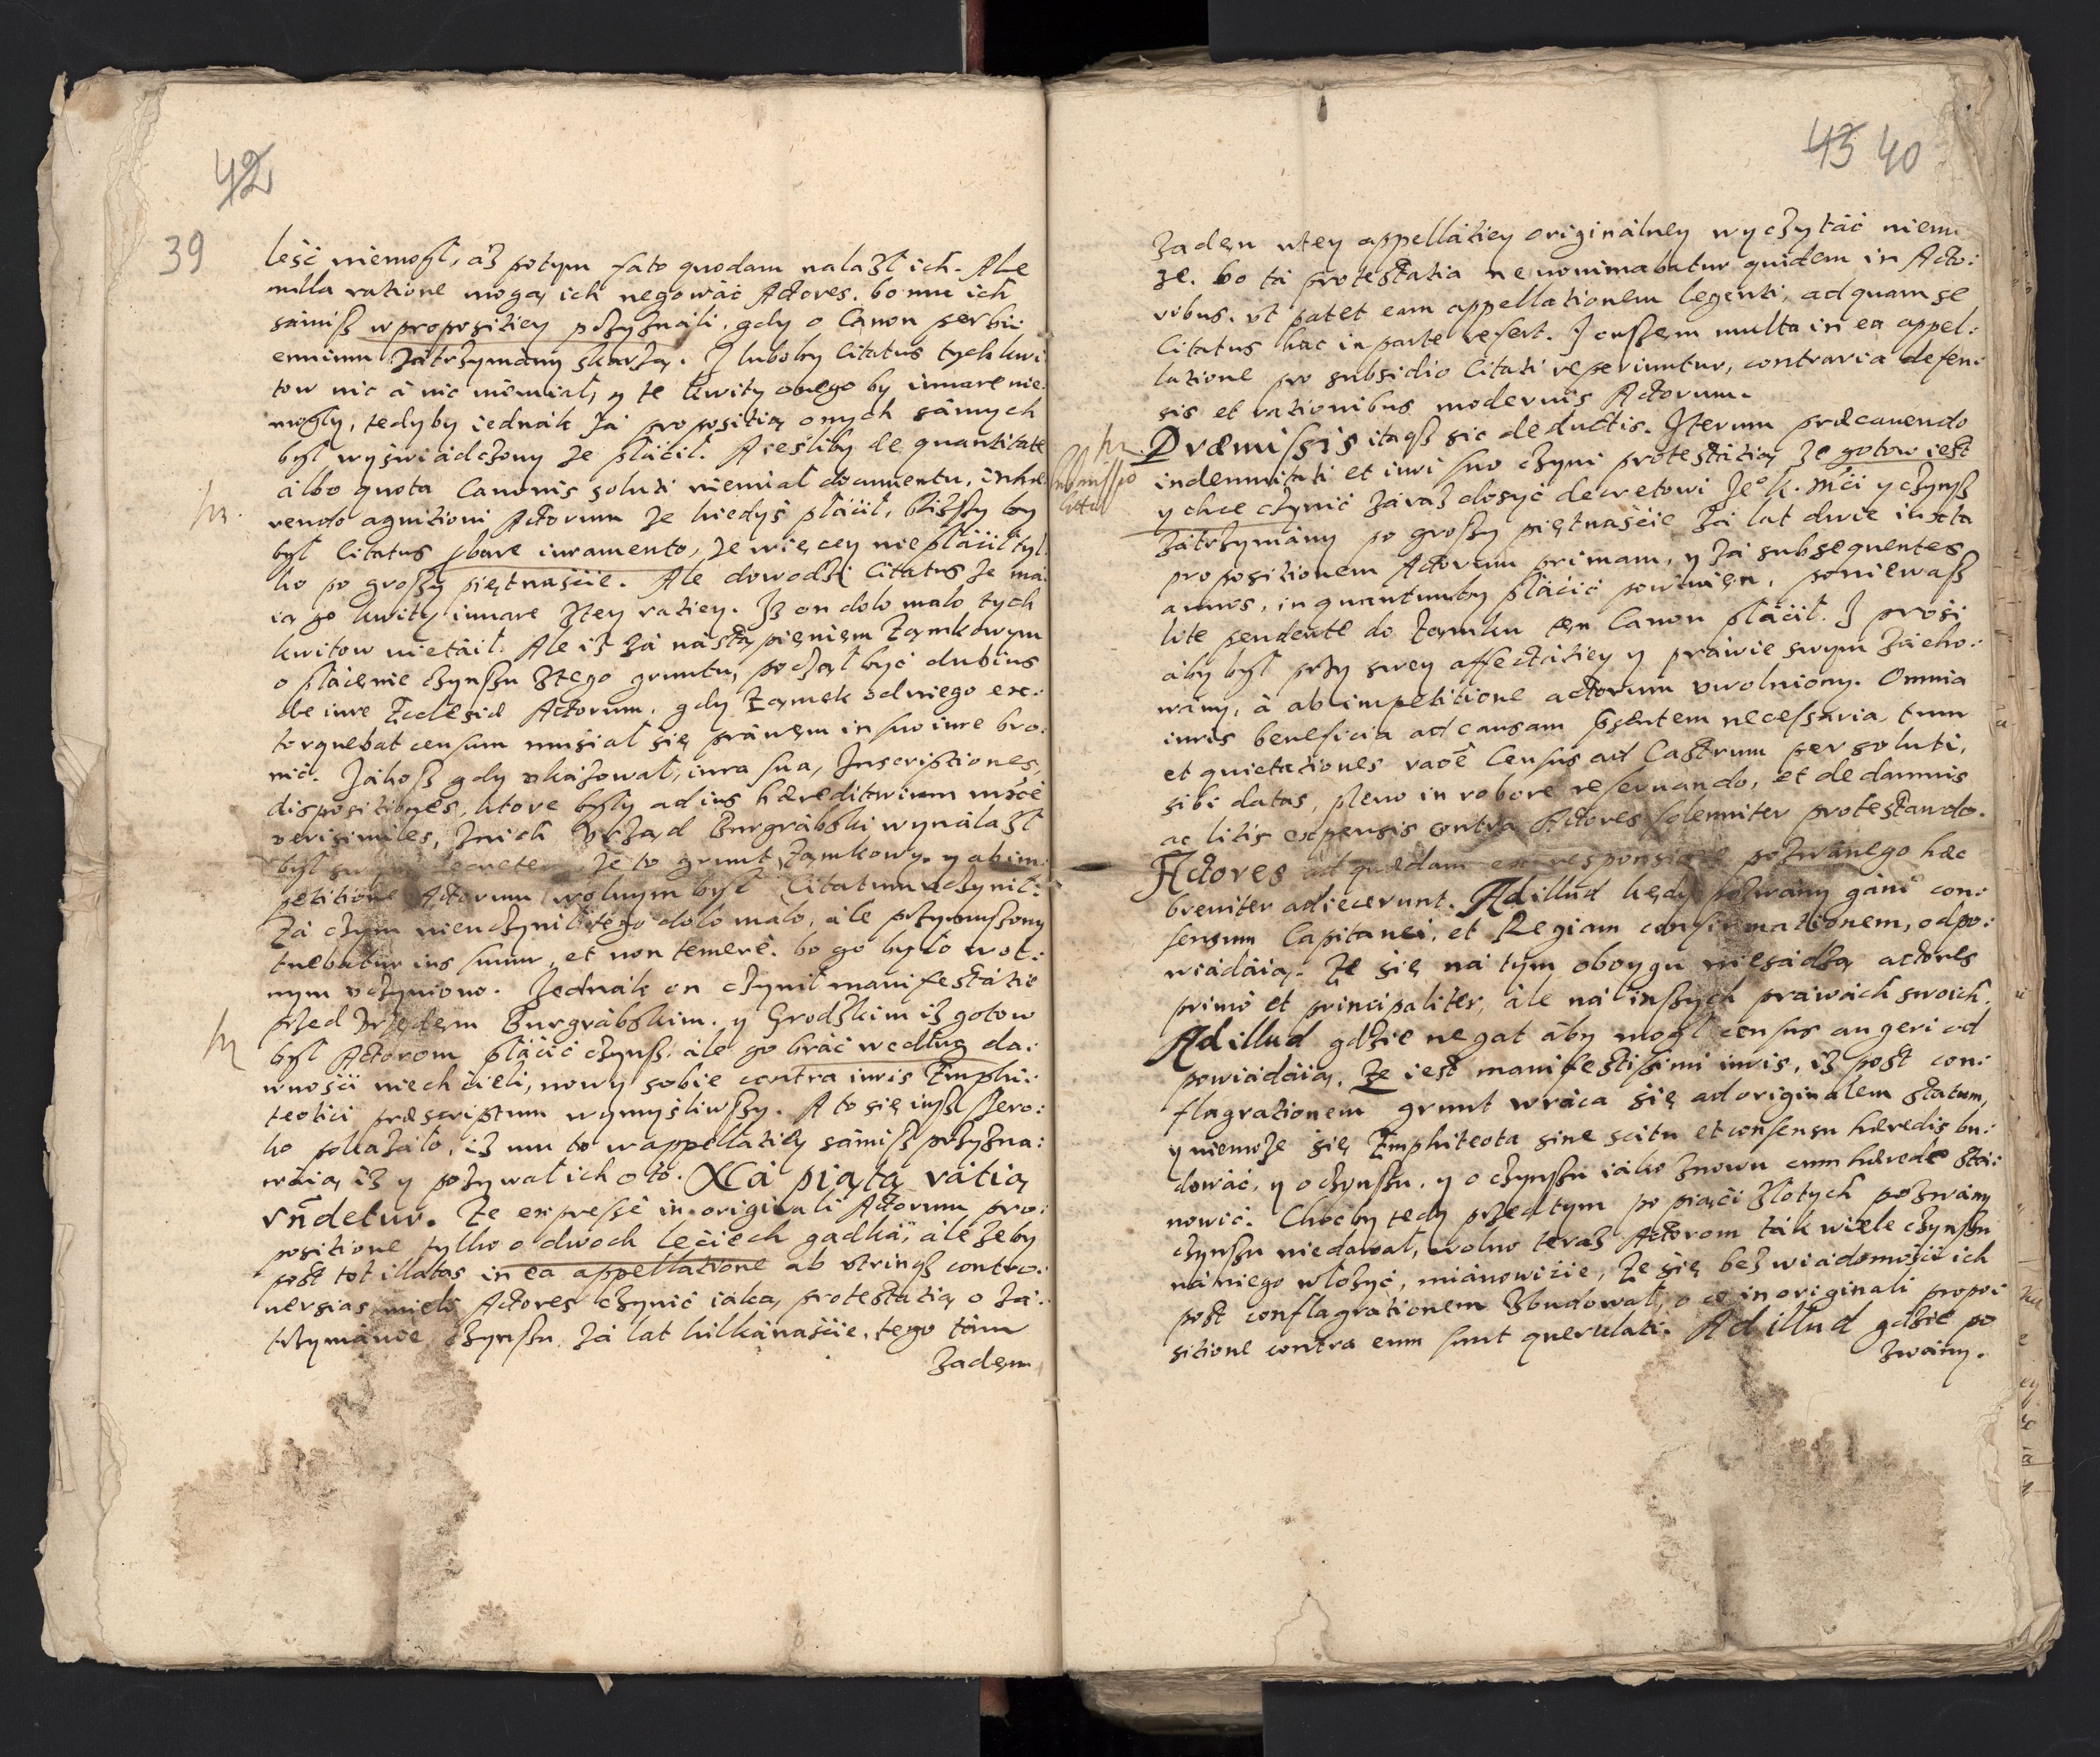 42
39
leść niemogł, aż potym fato quodam nalazł ich. Ale
nulla ratione mogą ich negowáć Actores. bo mu ich
sámiß wpropositiey przyználi, gdy o Canon per bi
ennium zátrzymány skarżą. I luboby Citatus tych kwi
tow nic á nic niemiał, y te kwity onego by iuuare nie
mogły, tedyby iednák zá propositią onych sámych
był wyświádczony że płáćił. A ieśliby de quantitate
álbo quota Canonis soluti niemiał documentu, inhæ
rendo agnitioni Actorum że kiedyś płáćił, bliższy by
był Citatus iuramento, że więcey niepłáćił tyl
ko po groszy piętnaśćie. Ale dowodzi Citatus że má
ią go kwity iuuare ztey ratiey. Iż on dolo malo tych
kwitow nietáił. Ale iż zá nástąpieniem Zamkowym
o płácenie czynszu ztego gruntu, począł być dubius
de iure Ecclesiæ Actorum, gdy Zamek odniego ex:
torquebat censum musiał się práwem in suo iure bro:
nić. Jákoß gdy vkázował, iura sua, Inscriptiones,
dispositiones, ktore były ad ius hæreditarium
verisimiles, znich Vrząd Burgrábski wynálazł
był że to grunt Zamkowy. y ab im:
petitione Actorum wolnym był Citatum vczynił:
Zá czym nieuczynił tego dolo malo, ále przymuszony
tuebatur ius suum, et non temerè. bo go było wol:
nym vczyniono. Jednák on czynił manifestátie
przed Vrzędem Burgrábskim. y Grodzkim iż gotow
był Actorom płáćić czynsz, ále go bráć według da:
wnośći niechćieli, nowy sobie contra iuris Emphi:
teotici præscriptum wymyśliwszy. A to się iusz szero:
ko pokazáło, iż mu to w appellatiey sámiß przyzna:
wáią iż y pozywał ich o to. Ná piątą rátią
rñdetur. Że expressè in originali Actorum pro:
positione tylko o dwoch lećiech gadká, ále żeby
post tot illatas in ea appellatione ab vtrinqз contro:
uersias mieli Actores czynić iáką protestatią o zá:
trzymánie czynszu zá lat kilkánaśćie, tego tám
żaden
43 40
żaden wtey appellátiey originálney wyczytáć niemo
że. bo tá protestatia ne nominabatur quidem in Acto:
ribus, vt patet eam appellationem legenti, ad quam se
Citatus hac in parte refert. I owszem multa in ea appel:
latione pro subsidio Citati reperiuntur, contraria defen:
sis et rationibus modernis Actorum.
Præmissis itaqз sic deductis. Iterum præcauendo
indemnitati et iuri suo czyni protestátią że gotow iest
y chce czynić záraz dosyć decretowi Je° K. Mći y czynß
zátrzymány po groszy piętnaśćie zá lat dwie iuxta
propositionem Actorum primam, y zá subsequentes
annos, in quantumby płáćić powinien, poniewaß
lite pendente do Zamku ten Canon płáćił. I prośi
áby był przy swey affectátiey y práwie swym zácho:
wány, á ab impetitione actorum vwolniony. Omnia
iuris beneficia ad causam pñtem necessaria, tum
et quietationes raõe Census ad Castrum persoluti,
sibi datas, pleno in robore reseruando, et de damnis
ac litis expensis contra Actores solenniter protestando.
Actores ad quædam ex pozwánego hæc
breuiter adiecerunt. Ad illud kędy pozwány gáni con:
sensum Capitanei, et Regiam confirmationem, odpo:
wiádáią. Że się ná tym oboygu niesádzą actores
primò et principaliter, ále ná inszych práwách swoich.
Ad illud gdzie negat áby mogł census augeri od
powiádáią, Że iest manifestissimi iuris, iż post con:
flagrationem grunt wráca się ad originalem statum,
y niemoże się Emphiteota sine scitu et consensu hæredis bu:
dowáć, y o czynszu, y o czynszu iáko znowu cum hærede stá:
nowić. Choćby tedy przedtym po piąći złotych pozwány
czynszu niedawał, wolno teraz Actorom ták wiele czynszu
ná niego włożyć, miánowićie, że się bez wiádomośći ich
post conflagrationem zbudował, o co in originali propo:
sitione contra eum sunt querulati. Ad illud gdzie po
zwány.